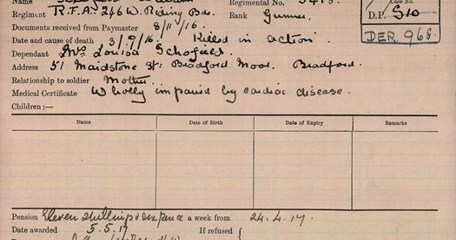 Name Regimental No. Case No.
Regiment R.F.A. 246 W. Riding Bde. Rank Gunner D.P. 510
Documents received from Paymaster 8/11/16.
Date and cause of death 3/9/16. Killed in action DER. 966
Dependant Mrs Louisa Schofield
Address 51 Maidstone St. Bradford Moor. Bradford.
Relationship to soldier Mother.
Medical Certificate Wholly impaired by cardiac disease.
Children:—
Name Date of Birth Date of Expiry Remarks
Pension Eleven shillings & sixpence a week from 24.4.17.
Date awarded 5.5.17 If refused {